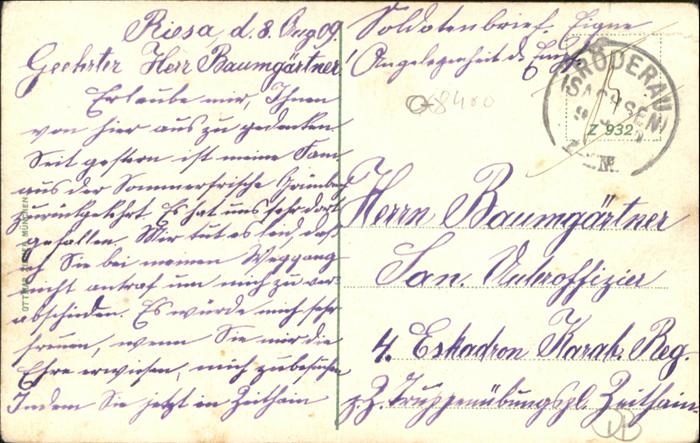 Riesa, d. 8. Aug 09.
Geehrter Herr Baumgärtner!
Erlaube mir, Ihnen
von hier aus zu gedenken
Seit gestern ist meine Fam.
aus der Sommerfrische
zurückgekehrt. Es hat uns sehr dort
gefallen. Mir tut es leid, daß
ich Sie bei meinem Weggang
nicht antraf um mich zu ver-
abschieden. Es würde mich sehr
freuen, wenn Sie mir die
Ehre erwiesen, mich zu besuchen
Indem Sie jetzt in Zeithain
Soldatenbrief. Eigne
Angelegenheit d. Empf.
8400
RÖDERAU
SACHSEN
Z 932
Herrn Baumgärtner
San. Unteroffizier
4. Eskadron Karab. Reg.
z. Z. Truppenübungspl. Zeithain.
OTTMAR ZIEHER, MÜNCHEN